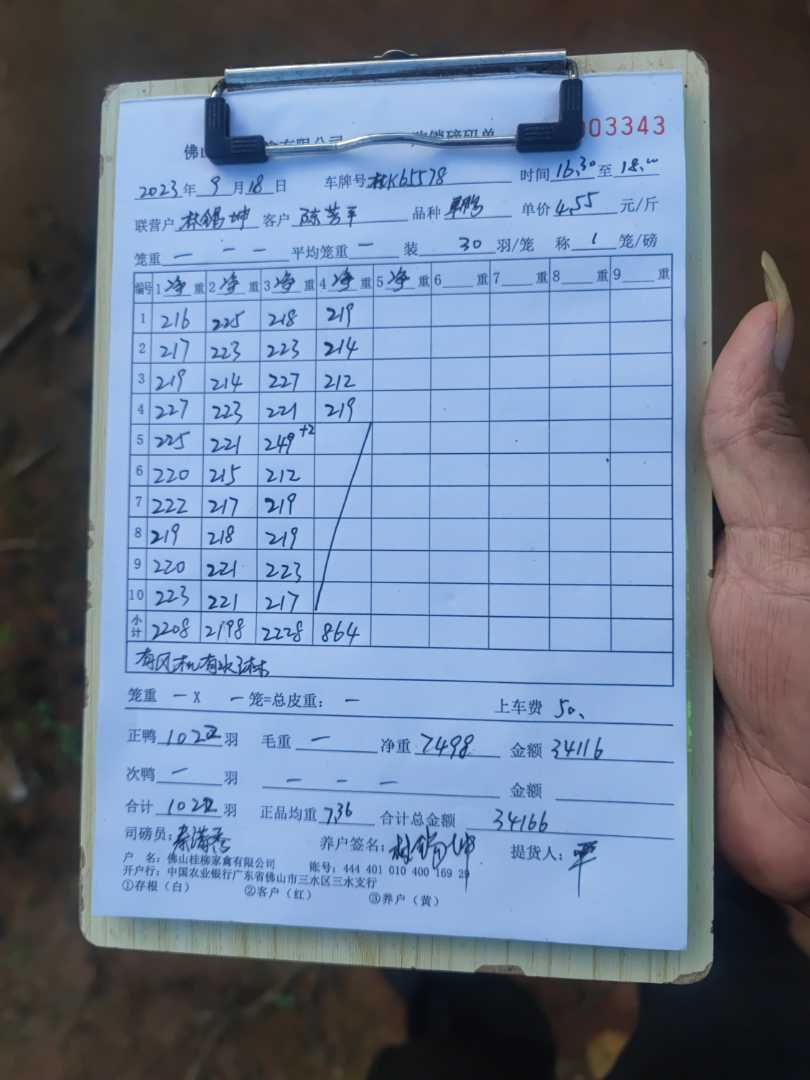 佛山 有限公司 购销磅码单 003343
2023年9月18日 车牌号桂K65578 时间16:30至18:00
联营户 林锡坤 客户 陈芳平 品种 单价4.55元/斤
笼重 — — — 平均笼重 — 装 30 羽/笼 称 1 笼/磅
编号 1净重 2净重 3净重 4净重 5净重 6 重 7 重 8 重 9 重
1 216 225 218 219
2 217 223 223 214
3 219 214 227 212
4 227 223 221 219
5 225 221 249+2
6 220 215 212
7 222 217 219
8 219 218 219
9 220 221 223
10 223 221 217
小计 2208 2198 2228 864
有风机有水
笼重 — X — 笼=总皮重: — 上车费 50.
正鸭 1022 羽 毛重 — 净重 7498 金额 34116
次鸭 — 羽 — — — 金额
合计 1022 羽 正品均重 7.36 合计总金额 34166
司磅员: 养户签名: 林锡坤 提货人: 平
户 名: 佛山桂柳家禽有限公司 账号: 444 401 010 400 169 29
开户行: 中国农业银行广东省佛山市三水区三水支行
①存根(白) ②客户(红) ③养户(黄)